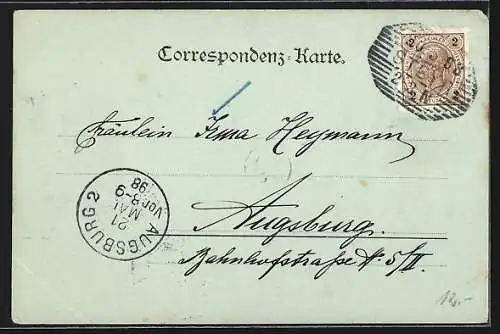 Correspondenz-Karte.
2 2
Fräulein Irma Heymann
Augsburg.
Bahnhofstraße № 5/II
AUGSBURG 2
21
MAI
Vor. 8-9
98